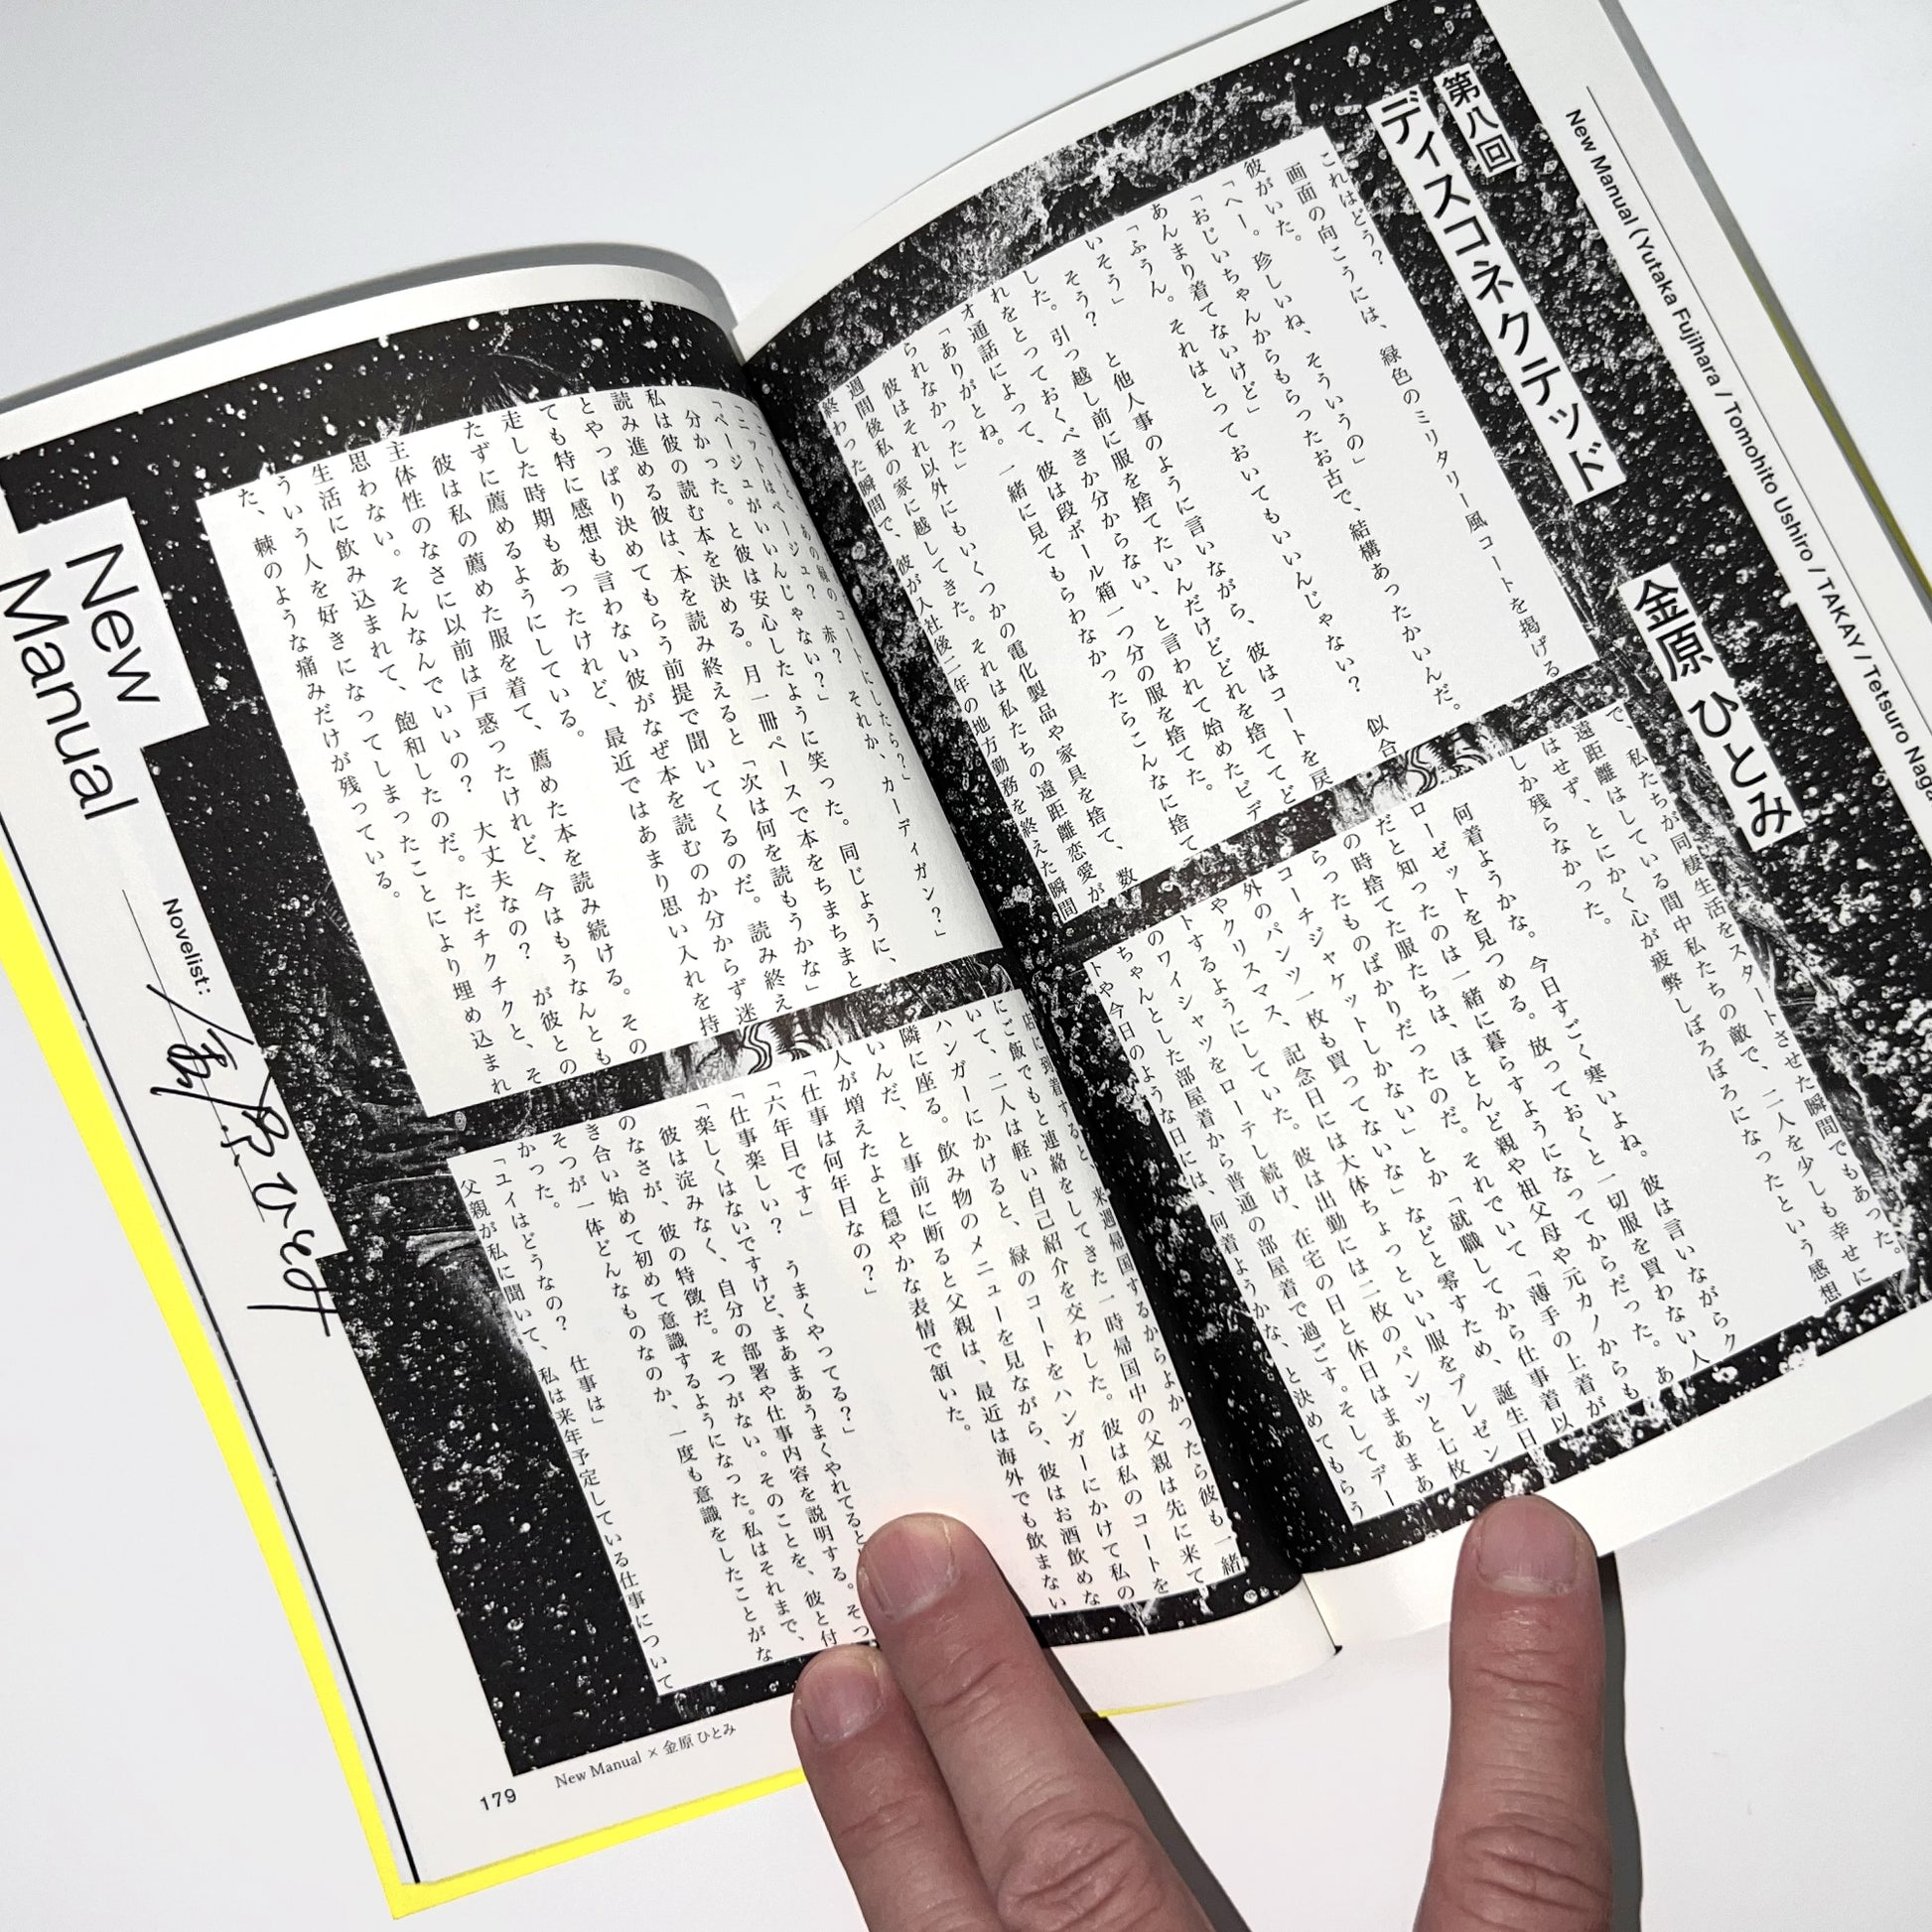 New Manual (Yutaka Fujihara / Tomohito Ushiro / TAKAY / Tetsuro
第八回
ディスコネクテッド
金原 ひとみ
これはどう？
画面の向こうには、緑色のミリタリー風コートを掲げる
彼がいた。
「へー。珍しいね、そういうの」
「おじいちゃんからもらったお古で、結構あったかいんだ。
あんまり着てないけど」
「ふうん。それはとっておいてもいいんじゃない？　似合
いそう」
そう？　と他人事のように言いながら、彼はコートを戻
した。引っ越し前に服を捨てたいんだけどどれを捨ててど
れをとっておくべきか分からない、と言われて始めたビデ
オ通話によって、彼は段ボール箱一つ分の服を捨てた。
「ありがとね。一緒に見てもらわなかったらこんなに捨て
られなかった」
彼はそれ以外にもいくつかの電化製品や家具を捨て、数
週間後私の家に越してきた。それは私たちの遠距離恋愛が
終わった瞬間で、彼が入社後二年の地方勤務を終えた瞬間
で、私たちが同棲生活をスタートさせた瞬間でもあった。
遠距離はしている間中私たちの敵で、二人を少しも幸せに
はせず、とにかく心が疲弊しぼろぼろになったという感想
しか残らなかった。
何着ようかな。今日すごく寒いよね。彼は言いながらク
ローゼットを見つめる。放っておくと一切服を買わない人
だと知ったのは一緒に暮らすようになってからだった。あ
の時捨てた服たちは、ほとんど親や祖父母や元カノからも
らったものばかりだったのだ。それでいて「薄手の上着が
コーチジャケットしかない」とか「就職してから仕事着以
外のパンツ一枚も買ってないな」などと零すため、誕生日
やクリスマス、記念日には大体ちょっといい服をプレゼン
トするようにしていた。彼は出勤には二枚のパンツと七枚
のワイシャツをローテし続け、在宅の日と休日はまあまあ
ちゃんとした部屋着から普通の部屋着で過ごす。そしてデー
トや今日のような日には、何着ようかな、と決めてもらう
あの緑のコートにしたら？」
ベージュ？　赤？　それか、カーディガン？」
「ベージュがいいんじゃない？」
分かった。と彼は安心したように笑った。同じように、
私は彼の読む本を決める。月一冊ペースで本をちまちまと
読み進める彼は、本を読み終えると「次は何を読もうかな」
とやっぱり決めてもらう前提で聞いてくるのだ。読み終え
ても特に感想も言わない彼がなぜ本を読むのか分からず迷
走した時期もあったけれど、最近ではあまり思い入れを持
たずに薦めるようにしている。
彼は私の薦めた服を着て、薦めた本を読み続ける。その
主体性のなさに以前は戸惑ったけれど、今はもうなんとも
思わない。そんなんでいいの？　大丈夫なの？　が彼との
生活に飲み込まれて、飽和したのだ。ただチクチクと、そ
ういう人を好きになってしまったことにより埋め込まれ
た、棘のような痛みだけが残っている。
店に到着すると、来週帰国するからよかったら彼も一緒
にご飯でもと連絡をしてきた一時帰国中の父親は先に来て
いて、二人は軽い自己紹介を交わした。彼は私のコートを
ハンガーにかけると、緑のコートをハンガーにかけて私の
隣に座る。飲み物のメニューを見ながら、彼はお酒飲めな
いんだ、と事前に断ると父親は、最近は海外でも飲まない
人が増えたよと穏やかな表情で頷いた。
「仕事は何年目なの？」
「六年目です」
「仕事楽しい？　うまくやってる？」
「楽しくはないですけど、まあまあうまくやれてると
彼は淀みなく、自分の部署や仕事内容を説明する。そつ
のなさが、彼の特徴だ。そつがない。そのことを、彼と付
き合い始めて初めて意識するようになった。私はそれまで、
そつが一体どんなものなのか、一度も意識をしたことがな
かった。
「ユイはどうなの？　仕事は」
父親が私に聞いて、私は来年予定している仕事について
New
Manual
Novelist:
金原ひとみ
New Manual × 金原 ひとみ
179